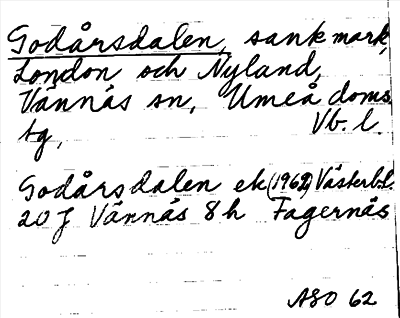 Godårsdalen, sank mark,
London och Nyland,
Vännäs sn, Umeå doms
tg, Vb. l.
Godårsdalen ek (1962) Västerb.l.
20 J Vännäs 8 h Fagernäs
ASO 62